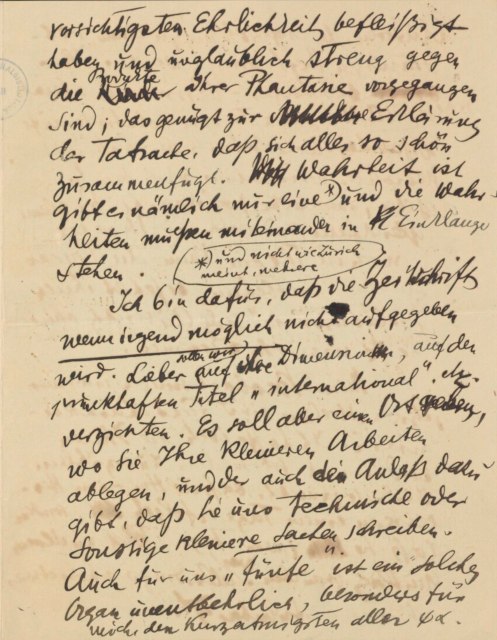 vorsichtigsten Ehrlichkeit befleißigt
haben und unglaublich streng gegen
die Produkte Ihrer Phantasie vorgegangen
sind; das genügt zur Erklärung
der Tatsache, daß sich alles so schön
zusammenfügt. Wahrheit ist
gibt es nämlich nur eine *) und die Wahr-
heiten müssen miteinander in Einklange
stehen.
*) und nicht wie Zürich
meint, mehrere
Ich bin dafür, daß die Zeitschrift
wenn irgend möglich nicht aufgegeben
wird. Lieber wollen wir auf Dimensionen, auf den
prunkhaften Titel „international" etc.
verzichten. Es soll aber einen Ort geben,
wo Sie Ihre kleineren Arbeiten
ablegen, und der auch den Anlaß dazu
gibt, daß Sie uns technische oder
sonstige kleinere Sachen schreiben.
Auch für uns „fünfe" ist ein solches
Organ unentbehrlich, besonders für
mich den kurzatmigsten aller